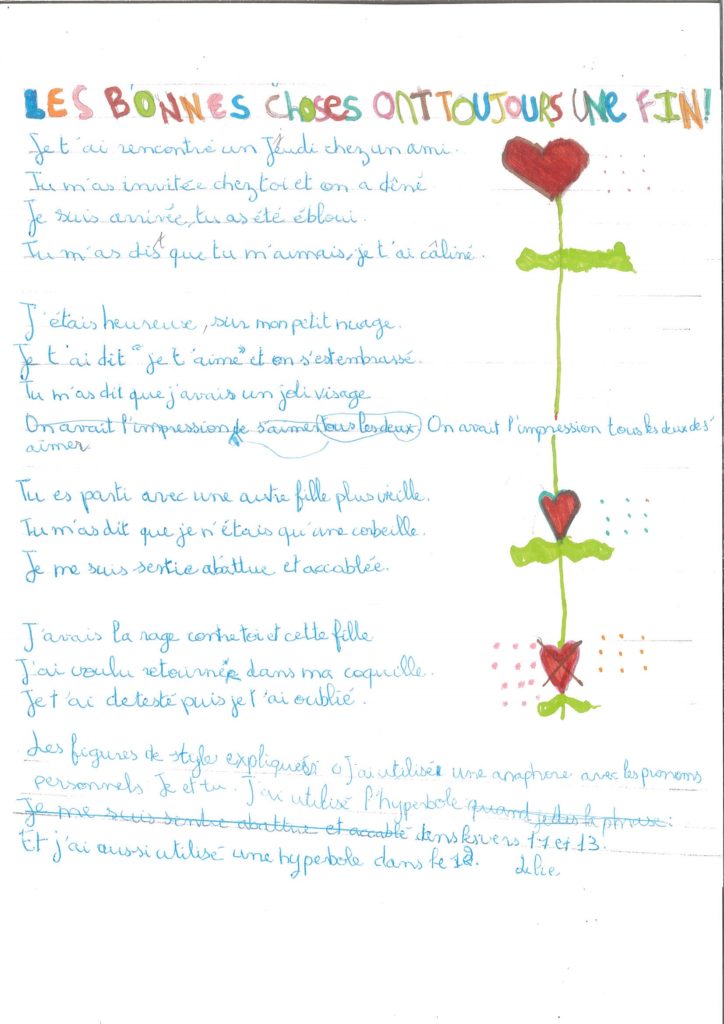 LES BONNES CHOSES ONT TOUJOURS UNE FIN!
Je t'ai rencontré un Jeudi chez un ami.
Tu m'as invitée chez toi et on a dîné
Je suis arrivée, tu as été ébloui.
Tu m'as dit que tu m'aimais, je t'ai câliné.
J'étais heureuse, sur mon petit nuage.
Je t'ai dit "je t'aime" et on s'est embrassé.
Tu m'as dit que j'avais un joli visage
On avait l'impression de s'aimer tous les deux On avait l'impression tous les deux de s'
aimer
Tu es parti avec une autre fille plus vieille.
Tu m'as dit que je n'étais qu'une corbeille.
Je me suis sentie abattue et accablée.
J'avais la rage contre toi et cette fille
J'ai voulu retourner dans ma coquille.
Je t'ai detesté puis je t'ai oublié.
Les figures de style expliquées J'ai utilisé une anaphore avec les pronoms
personnels Je et tu. J'ai utilisé l'hyperbole quand je dis la phrase:
Je me suis sentie abattue et accablé dans les vers 11 et 13.
Et j'ai aussi utilisé une hyperbole dans le 12.